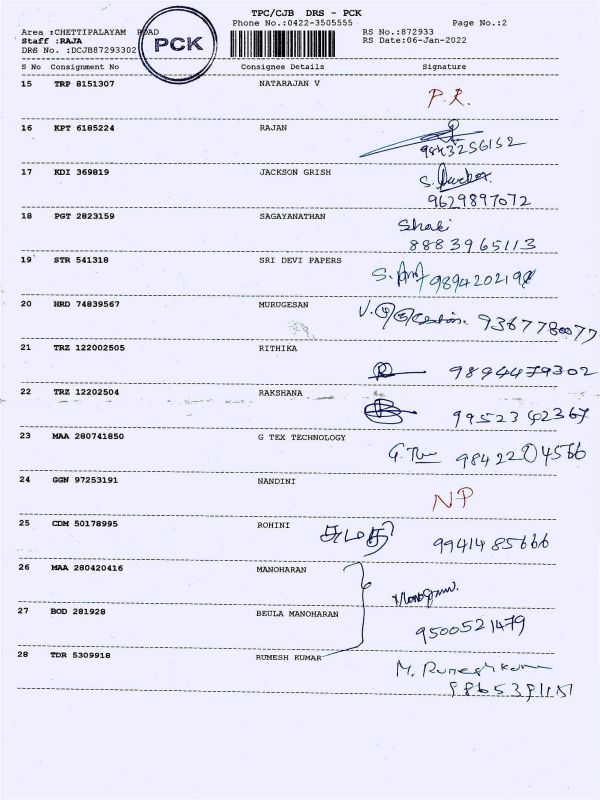 TPC/CJB DRS - PCK
Phone No.:0422-3505555 Page No.:2
Area :CHETTIPALAYAM ROAD RS No.:872933
Staff :RAJA RS Date:06-Jan-2022
DRS No. :DCJB87293302
PCK
S No Consignment No Consignee Details Signature
15 TRP 8151307 NATARAJAN V
P.R.
16 KPT 6185224 RAJAN
9843256152
17 KDI 369819 JACKSON GRISH
S.
9629897072
18 PGT 2823159 SAGAYANATHAN
Shaki
8883965113
19 STR 541318 SRI DEVI PAPERS
S.
20 HRD 74839567 MURUGESAN
V. 9367780077
21 TRZ 122002505 RITHIKA
9894479302
22 TRZ 12202504 RAKSHANA
9952342367
23 MAA 280741850 G TEX TECHNOLOGY
G. 9842204566
24 GGN 97253191 NANDINI
NP
25 CDM 50178995 ROHINI
சுமதி 9941485666
26 MAA 280420416 MANOHARAN
27 BOD 281928 BEULA MANOHARAN
9500521479
28 TDR 5309918 RUMESH KUMAR
M. Rumeshkumar